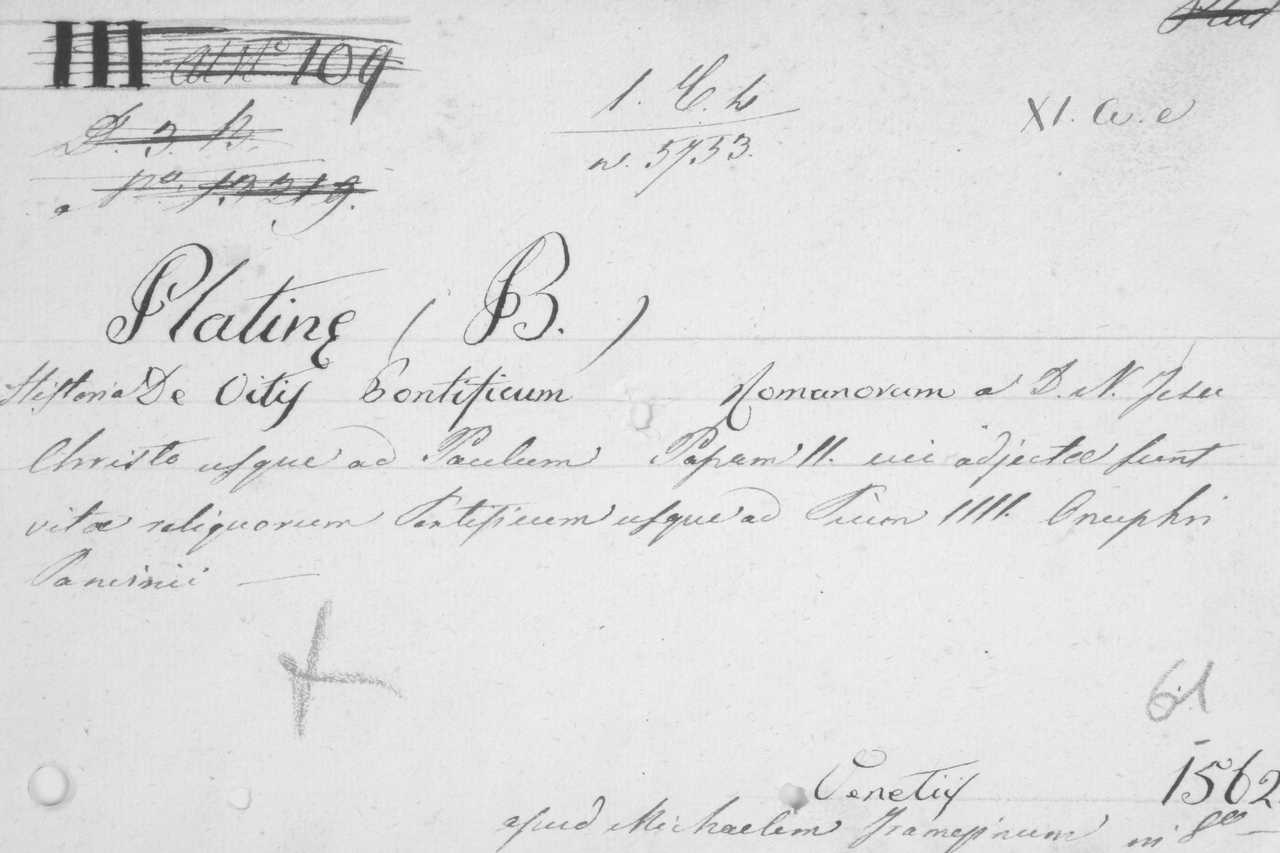 III 109
1. C. h
XI. a. e
D. 3. B.
n. 5733.
no. 13319.
Platinę (B.)
Historia De Vitiſ Pontificum Romanorum a D. N. Jesu
Christo uſque ad Paulum Papam II. cui adjectæ ſunt
vitæ reliquorum Pontificum uſque ad Pium IIII. Onuphri
Panvinii —
61
Venetiiſ 1562.
apud Michaelem in 8vo